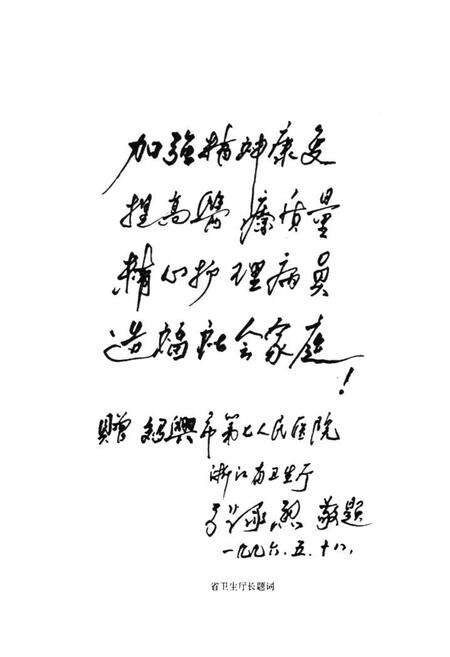 加强精神康复
提高医疗质量
精心护理病员
造福社会家庭!
赠 绍兴市第七人民医院
浙江省卫生厅
敬题
一九九六.五.十八.
省卫生厅长题词